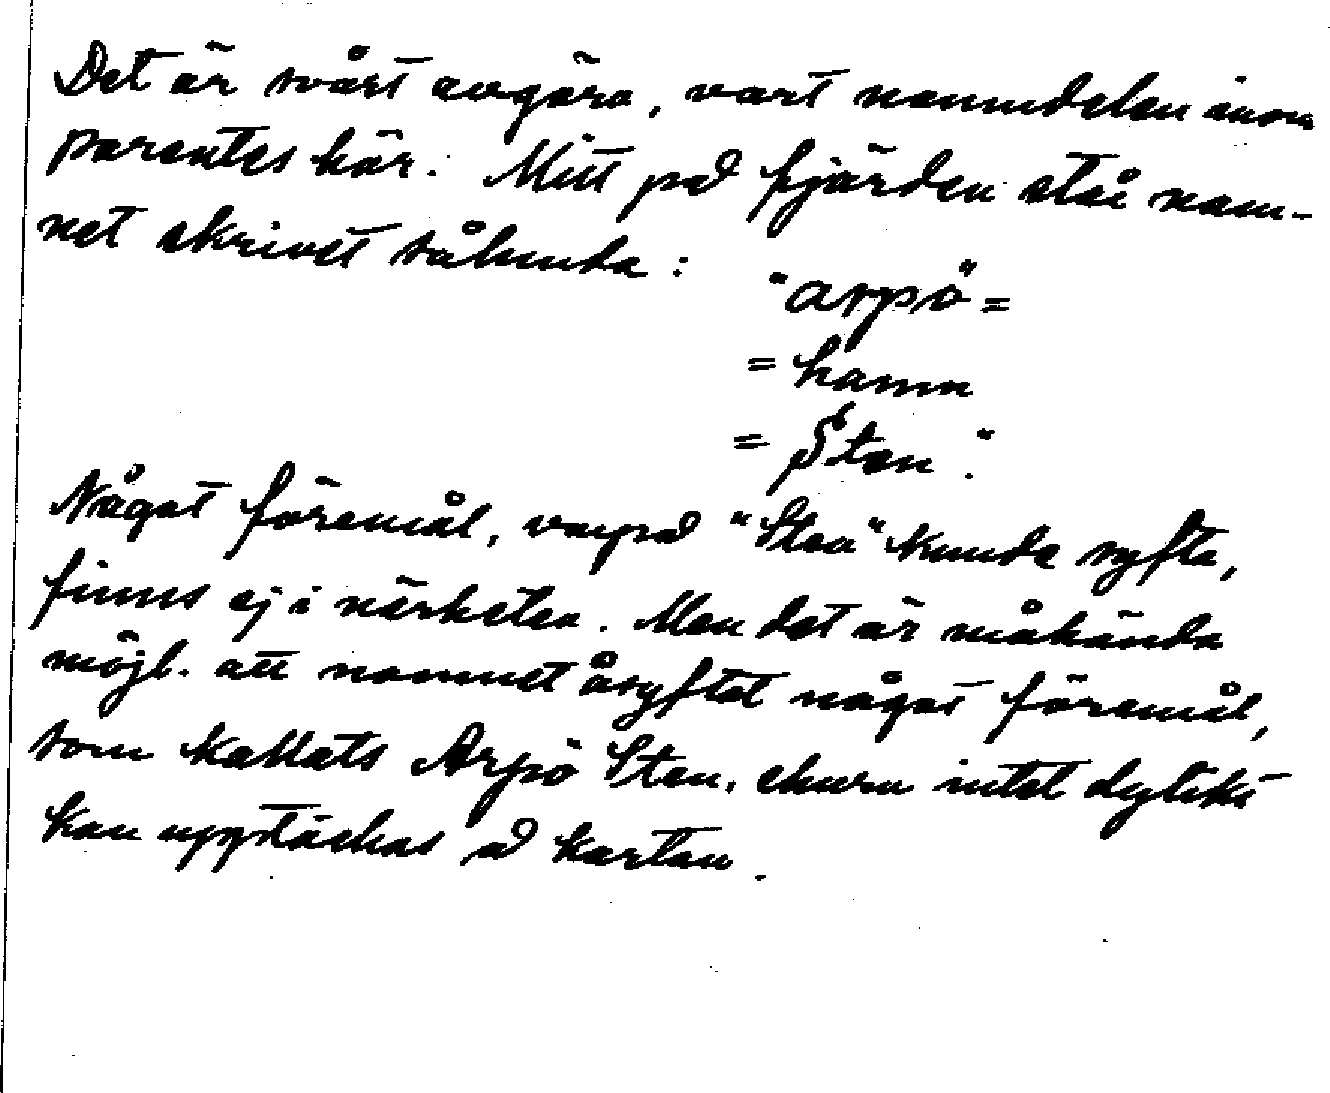 Det är svårt avgöra, vart namndelen inom
parentes hör. Mitt på fjärden står nam-
net skrivet sålunda:
"arpö"=
= hamn
= Sten".
Något föremål, varpå "Sten" kunde syfta,
finns ej i närheten. Men det är måhända
möjl. att namnet åsyftat något föremål,
som kallats Arpö Sten, ehuru intet dylikt
kan upptäckas å kartan.